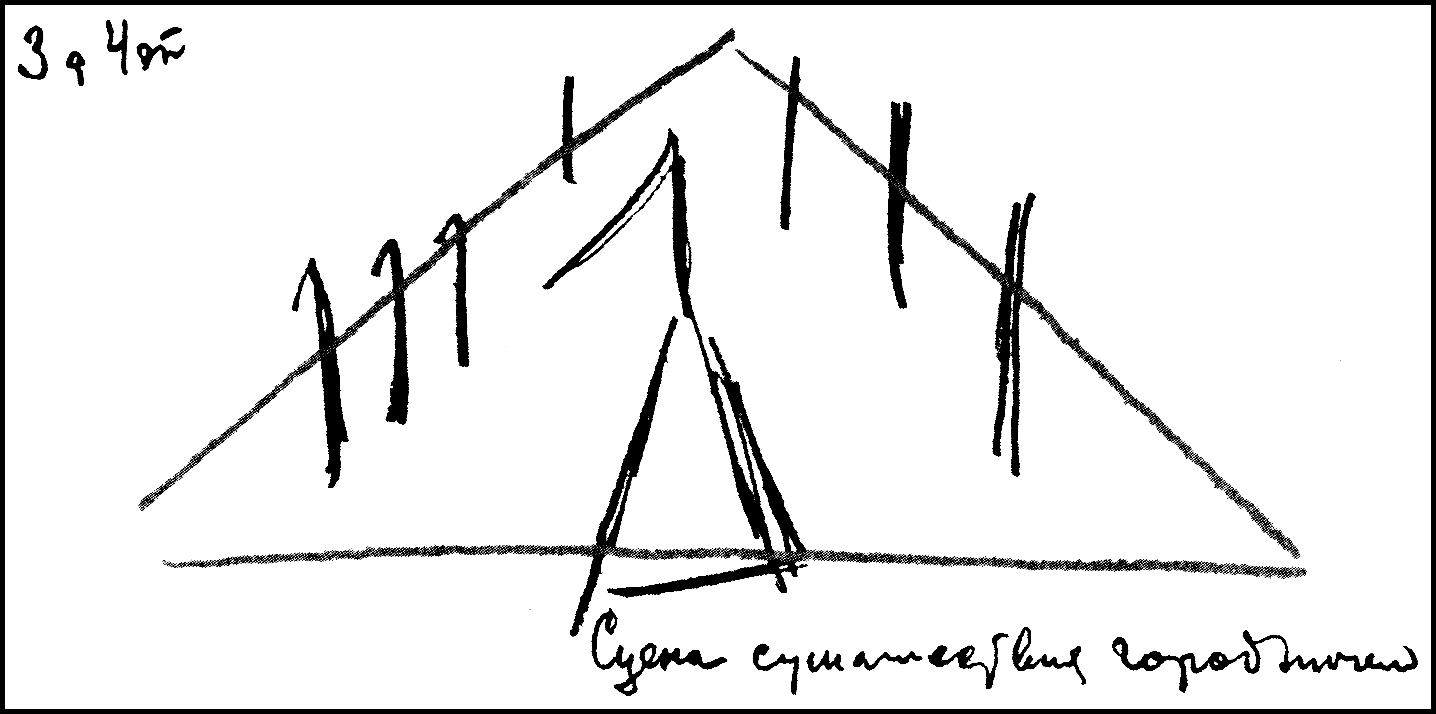 3 4
Сцена сумашествия городничего